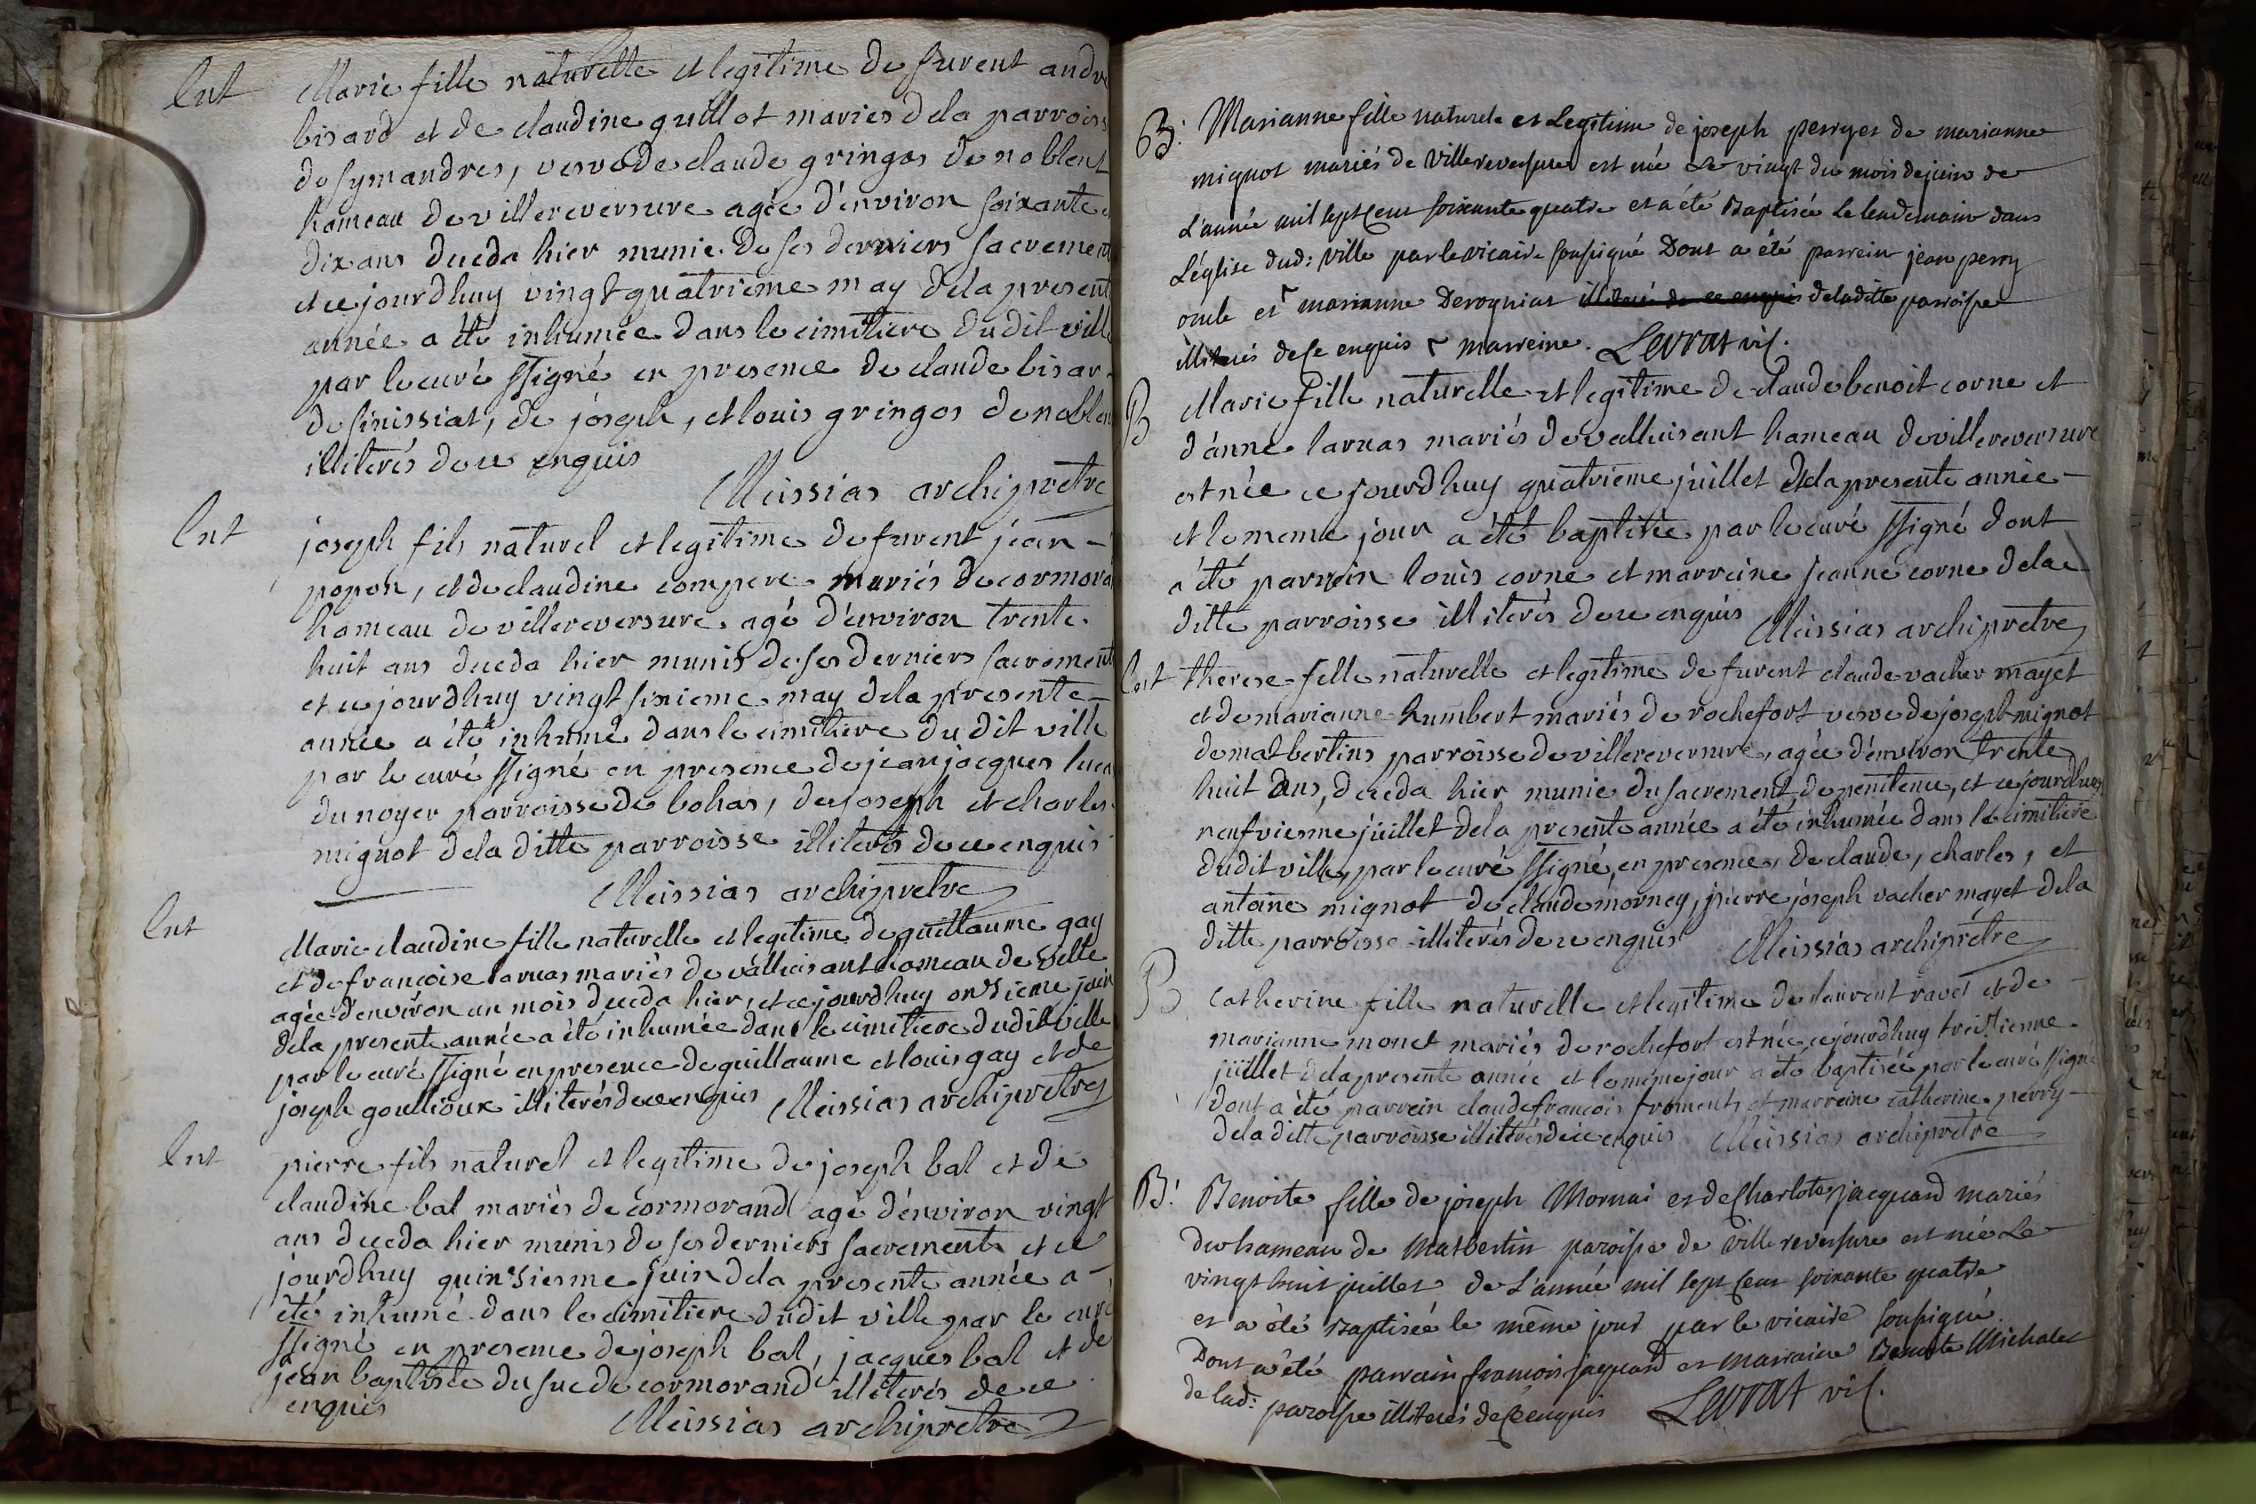 Ent Marie fille naturelle et legitime de furent andre
bisard et de claudine guillot mariés dela parroisse
de symandres, vesve de claude gringos de noblent
hameau de villereversure agée d'environ soixante et
dix ans deceda hier munie de ses derniers sacrement
et ce jourdhuy vingt quatrieme may dela present
année a été inhumée dans le cimitiere dudit ville
par le curé ssigné en presence de claude bisar
de sinissiat, de joseph, et louis gringos de noblent
illiterés de ce enquis
Meissias archipretre
Ent joseph fils naturel et legitime de furent jean
popon, et de claudine compere mariés de cormora
hameau de villereversure agé d'environ trente
huit ans deceda hier munis de ses derniers sacrement
et ce jourdhuy vingt sixieme may dela presente
année a été inhumé dans le cimitiere du dit ville
par le curé ssigné en presence de jean jacques
du noyer parroisse de bohas, de joseph et charles
mignot dela ditte parroisse illiterés de ce enquis
Meissias archipretre
Ent Marie claudine fille naturelle et legitime de guillaume gay
et de francoise larnas mariés de valluisant hameau de ville
agée d'environ un mois deceda hier, et ce jourdhuy onzieme juin
dela presente année a été inhumée dans le cimitiere dudit ville
par le curé ssigné en presence de guillaume et louis gay et de
joseph goullioux illiterés de ce enquis Meissias archipretre
Ent pierre fils naturel et legitime de joseph bal et de
claudine bal mariés de cormorand agé d'environ vingt
ans deceda hier munis de ses derniers sacrements et ce
jourdhuy quinzieme juin dela presente année a
été inhumé dans le cimitiere dudit ville par le curé
ssigné en presence de joseph bal, jacques bal et de
jean baptiste du suc de cormorand illiterés de ce
enquis
Meissias archipretre
B: Marianne fille naturele et Legitime de joseph perry et de marianne
mignot mariés de Villereversure est née Le vingt du mois de juin de
L'année mil sept Cent soixante quatre et a été Baptisée Le lendemain dans
L'église dud: ville par le vicaire soussigné Dont a été parrein jean perry
oncle et marianne illiterés de ce enquis de la ditte parroisse
illiterés de Ce enquis marreine. Levrat vic.
B Marie fille naturelle et legitime de claude benoit corne et
d'anne larnas mariés de valluisant hameau de villereversure
est née ce jourdhuy quatrieme juillet dela presente année
et le meme jour a été baptisée par le curé ssigné dont
a été parrain louis corne et marreine jeanne corne dela
ditte parroisse illiterés de ce enquis Meissias archipretre
Ent therese fille naturelle et legitime de furent claude vacher mayet
et de marianne humbert mariés de rochefort vesve de joseph mignot
de matbertins parroisse de villereversure, agée d'environ trente
huit ans, deceda hier munie du sacrement de penitence, et ce jourdhuy
neufvieme juillet dela presente année a été inhumée dans le cimitiere
dudit ville, par le curé ssigné, en presence, de claude, charles, et
antoine mignot de claude morney, pierre joseph vacher mayet dela
ditte parroisse illiterés de ce enquis Meissias archipretre
B Catherine fille naturelle et legitime de laurent ravet et de
marianne monet mariés de rochefort est née ce jourdhuy treizieme
juillet dela presente année et le meme jour a été baptisée par le curé ssigné
dont a été parrein claude francois froment, et marreine catherine perry
dela ditte parroisse illiterés de ce enquis Meissias archipretre
B: Benoite fille de joseph Mornai et de Charlotes jacquand mariés
du hameau de Matbertin paroisse de villereversure est née Le
vingt huit juillet de L'année mil sept Cent soixante quatre
et a été Baptisée le même jour par le vicaire soussigné
Dont a été parrain francois jacquand et marraine Benoite Michalet
de lad: paroisse illiterés de Ce enquis Levrat vic.